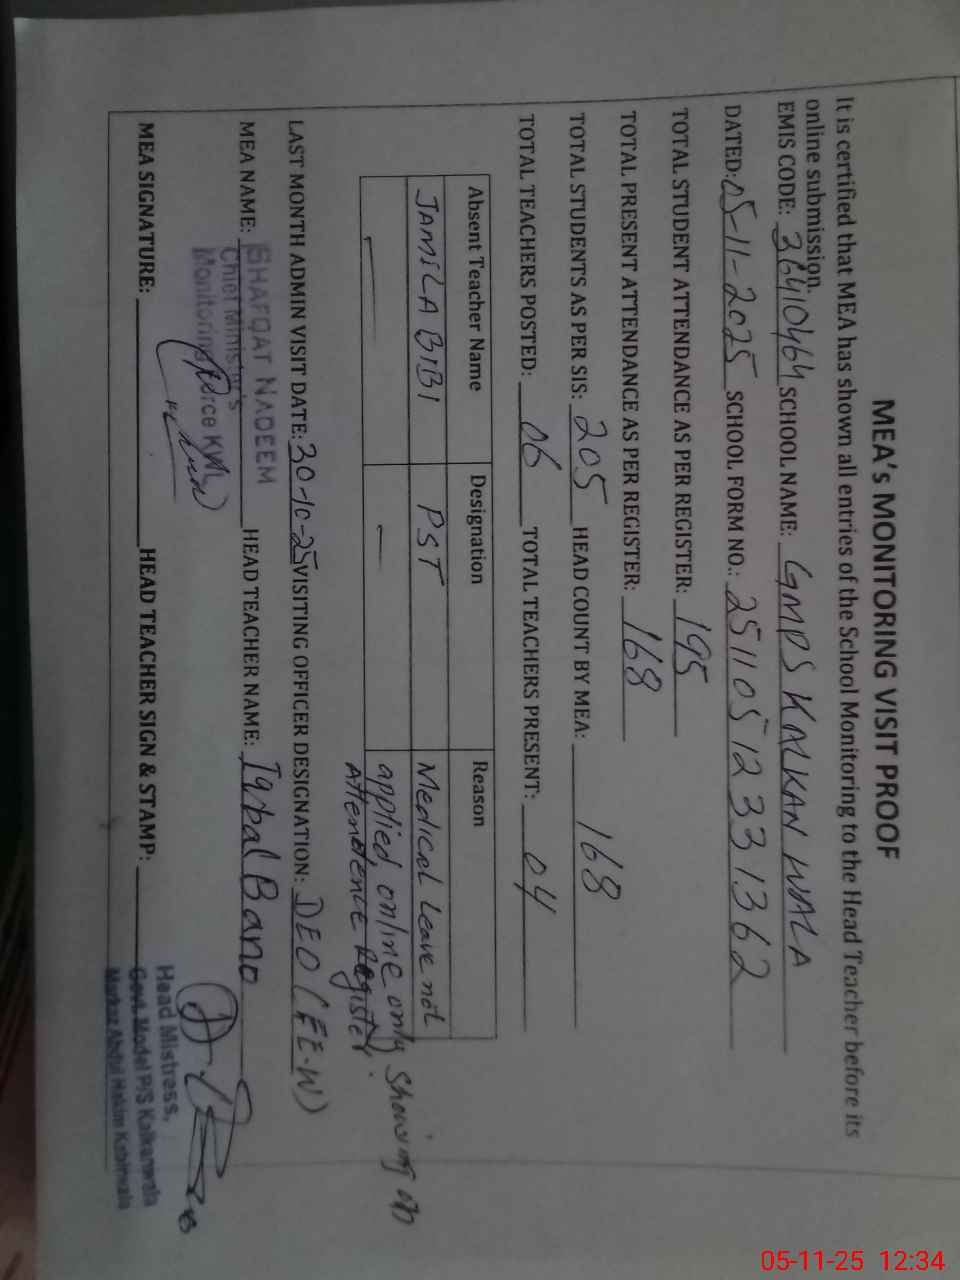 MEA's MONITORING VISIT PROOF
It is certified that MEA has shown all entries of the School Monitoring to the Head Teacher before its
online submission.
EMIS CODE: 36410464 SCHOOL NAME: GMPS KALKAN WALA
DATED: 05-11-2025 SCHOOL FORM NO.: 251105 12 331362
TOTAL STUDENT ATTENDANCE AS PER REGISTER: 195
TOTAL PRESENT ATTENDANCE AS PER REGISTER: 168
TOTAL STUDENTS AS PER SIS: 205 HEAD COUNT BY MEA: 168
TOTAL TEACHERS POSTED: 06 TOTAL TEACHERS PRESENT: 04
Absent Teacher Name Designation Reason
JAMILA BIBI PST Medical Leave not
applied online only Showing on
Attendence Register.
LAST MONTH ADMIN VISIT DATE: 30-10-25 VISITING OFFICER DESIGNATION: DEO (EE-W)
MEA NAME: HEAD TEACHER NAME: Iqbal Bano
SHAFQAT NADEEM
Chief Minister's
Monitoring Force KWL
MEA SIGNATURE: HEAD TEACHER SIGN & STAMP:
Head Mistress,
Govt. Model P/S Kalkanwala
Markaz Abdul Hakim Kabirwala
05-11-25 12:34